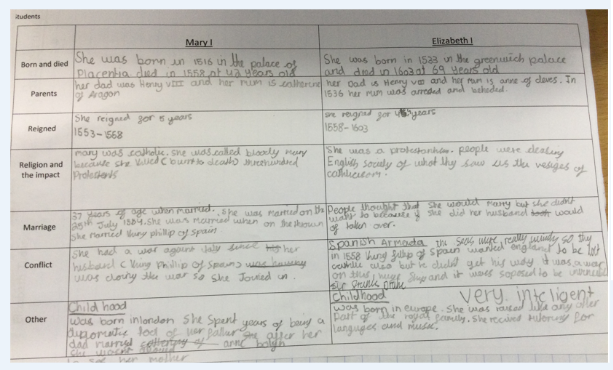 students
Mary I
Elizabeth I
Born and died
She was born in 1516 in the palace of
Placentia died in 1558 at 42 years old
She was born in 1533 in the greenwich palace
and died in 1603 at 69 years old
Parents
her dad was Henry VIII and her mum is catherine
of Aragon
her dad is Henry VIII and her mum is anne of cleves. In
1536 her mum was arrested and beheded.
Reigned
She reigned for 5 years
1553-1558
she reigned for 45 years
1558-1603
Religion and
the impact
mary was catholic. She was called bloody mary
because she killed (burnt to death) threehundred
Protestants
She was a protestantism. people were
English society of what they saw as the vestiges of
catholicism.
Marriage
37 years of age when married. She was married on the
25th July 1554. She was married when on the thrown
She married King philip of spain
People thought that she would marry but she didnt
want to because if she did her husband would
of taken over.
Conflict
She had a war against her
husband (King Philip of Spain) was
was the war so she Joined in.
Spanish Armada the seas were really so thy
in 1558 King filip of Spain wanted england to be
also but he didnt get his way it was a war
on and it was soposed to be
Sir Francis Drake
Other
Child hood
was born in london she spent years of being a
diplomatic tool of her father she after her
dad married anne boleyn
her mother
Childhood
very intelligent
was born in europe. She was raised like any other
part of the royal family. She recived tutoring for
languges and music.